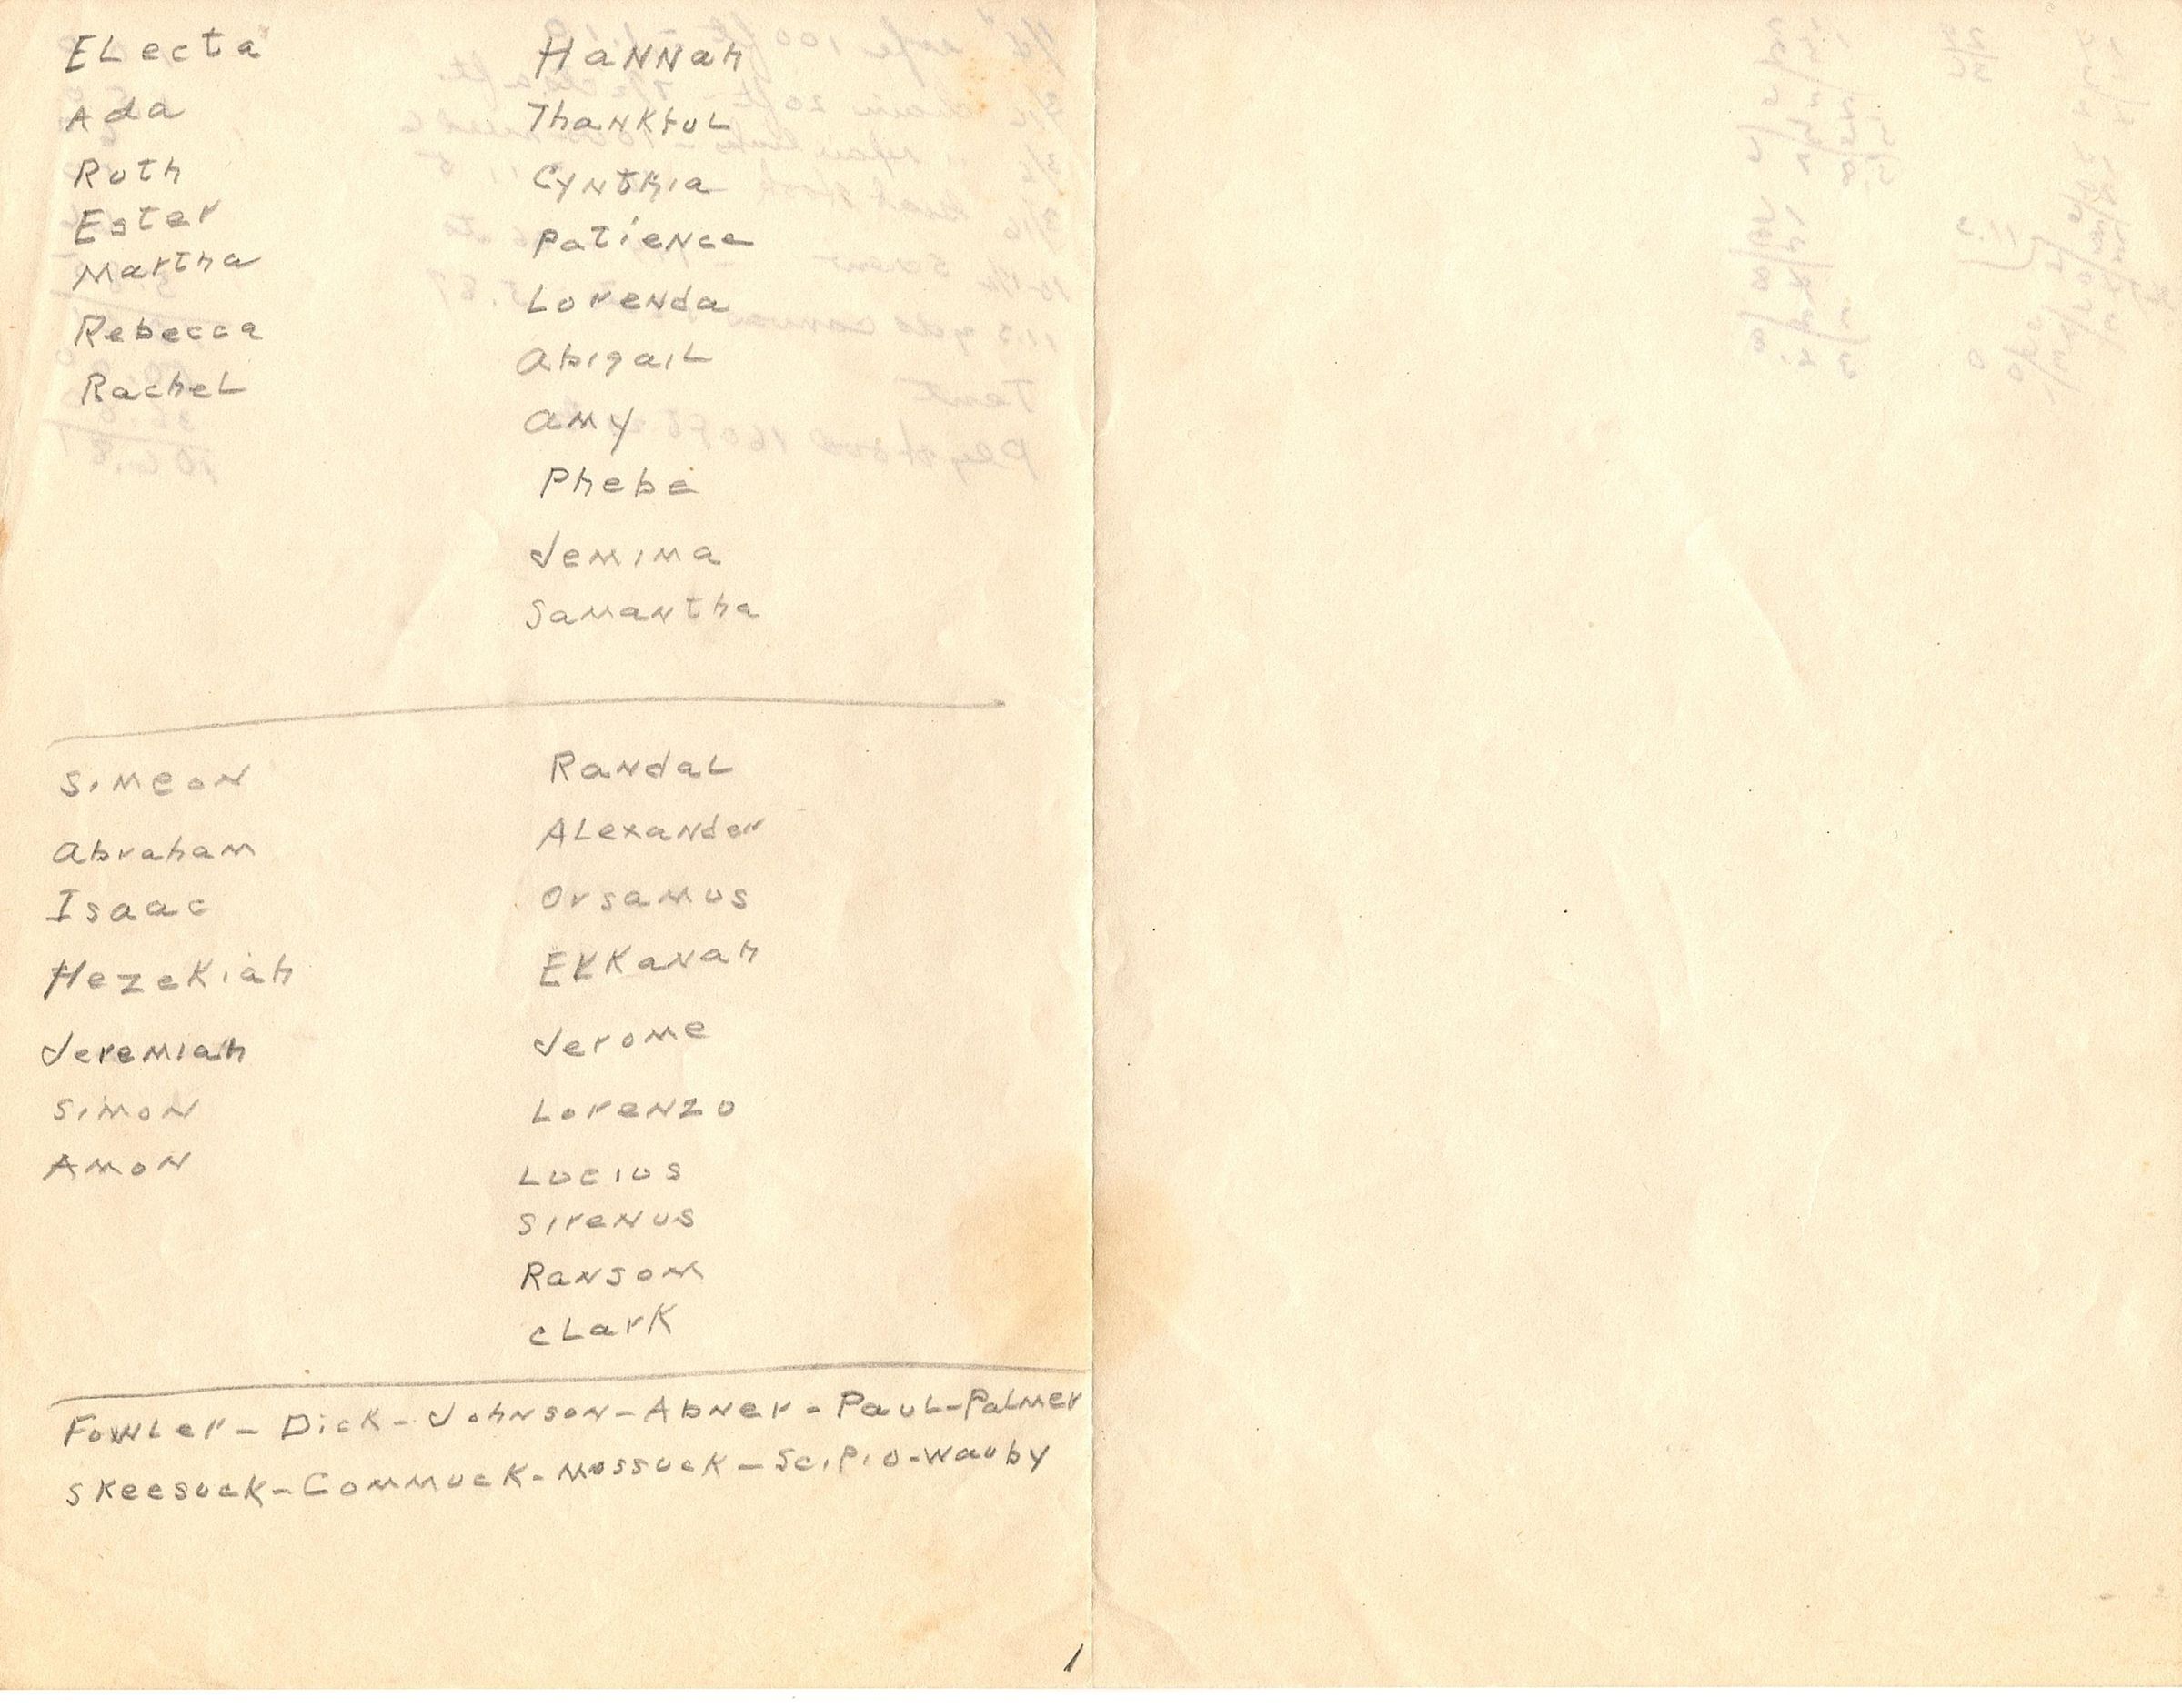 ELecta
Ada
Ruth
Ester
Martha
Rebecca
Rachel
HaNNah
ThaNKfuL
CyNthia
PatieNce
LoreNda
abigaiL
aMy
Phebe
JeMiMa
SaMaNtha
SiMeoN
abrahaM
Isaac
HezeKiah
JereMiah
SiMoN
AMoN
RaNdaL
ALexaNder
OrsaMus
EKKaNah
JeroMe
LoreNzo
Lucius
SireNus
RaNsoM
cLarK
FowLer - DicK - JohNsoN - AbNer - PauL - PaLMer
SKeesucK - CoMMucK - MossucK - Scipio - Wauby
1